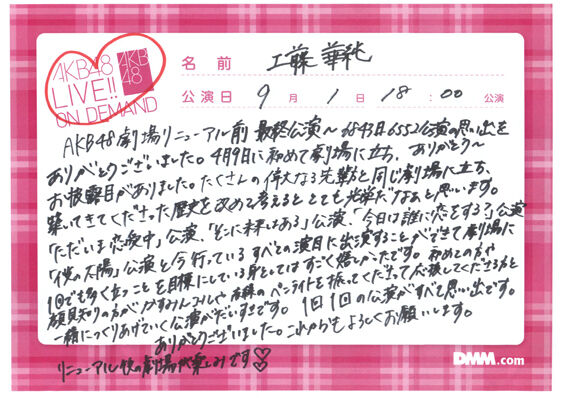 AKB48
LIVE!!
ON DEMAND
AKB
48
名前 工藤 華純
公演日 9月 1日 18:00 公演
AKB48劇場リニューアル前 最終公演〜6843日6552公演の思い出を
ありがとうございました。4月9日に初めて劇場に立ち、ありがとう〜
お披露目がありました。たくさんの偉大なる先輩と同じ劇場に立ち、
築いてきてくださった歴史を改めて考えるととても光栄だなぁと思います。
「ただいま恋愛中」公演、「そこに未来はある」公演、「今日は誰に恋をする?」公演
「僕の太陽」公演と今行っているすべての演目に出演することができて劇場に
1回でも多く立つことを目標にしている身としてはすごく嬉しかったです。初めての方や
顔見知りの方がかすみんみしや のペンライトを振ってくださって応援してくださる方と
一緒につくりあげていく公演がだいすきです。1回1回の公演がすべて思い出です。
ありがとうございました。これからもよろしくお願いします。
リニューアル後の劇場が楽しみです♡
DMM.com